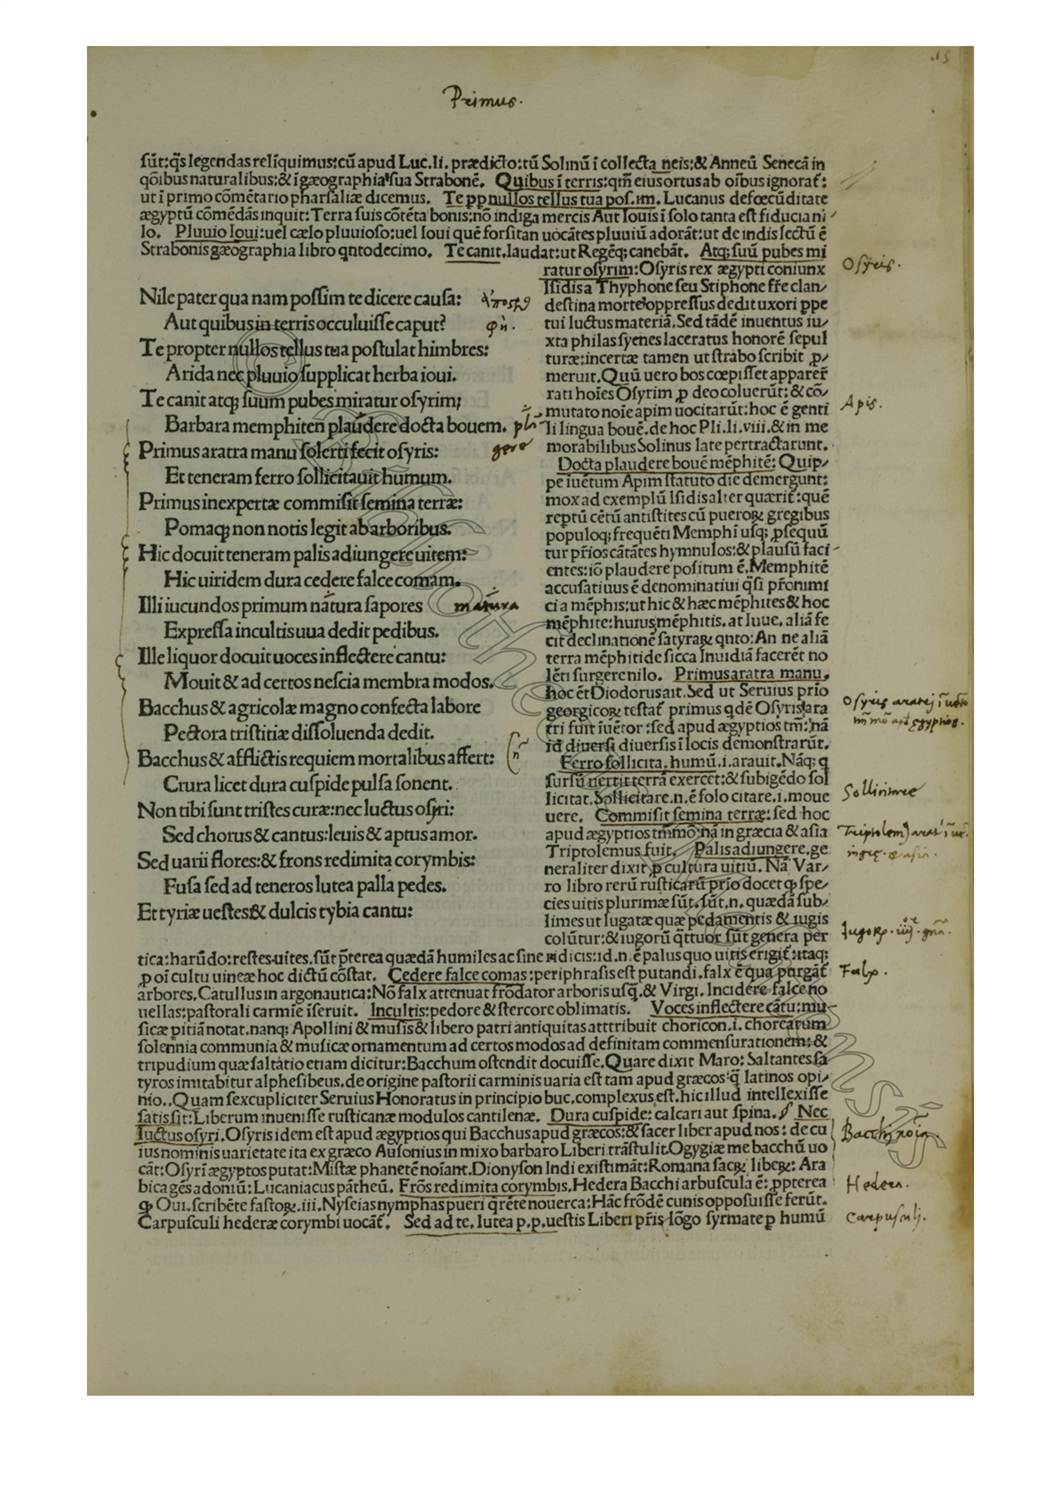 Primus.
.15
sūt:q̄s legendas relīquimus:cū apud Luc.li.prædicto:tū Solinū ī collecta neis:& Anneū Senecā in
qōibus naturalibus:& ī gæographia sua Strabonē. Quibus ī terris:qm̄ eius ortus ab oībus ignorat̄:
ut ī primo cōmētario pharsaliæ dicemus. Te pp nullos tellus tua pos.im. Lucanus defœcūditate
ægyptū cōmēdās inquit: Terra suis cōtēta bonis:nō indiga mercis Aut Iouis ī solo tanta est fiducia ni
lo. Pluuio Ioui:uel cælo pluuioso:uel Ioui quē forsitan uocātes pluuiū adorāt:ut de indis lectū ē
Strabonis gæographia libro qntodecimo. Te canit.laudat:ut Regēq; canebāt. Atq; suū pubes mi
ratur osyrim:Osyris rex ægypti coniunx
Osyris.
Isidis a Thyphone seu Stiphone fr̄e clan/
destina morte oppressus dedit uxori ppe
tui luctus materiā.Sed tādē inuentus iu/
xta philas syenes laceratus honorē sepul
turæ:incertæ tamen ut strabo scribit p̱/
meruit.Quū uero bos cœpisset apparer̄
rati hoīes Osyrim p̱ deo coluerūt:& cō/
mutato noīe apim uocitarūt:hoc ē genti
Apis.
li lingua bouē.de hoc Pli.li.viii.& in me
morabilibus Solinus late pertractarunt.
Docta plaudere bouē mēphitē: Quip/
pe iuētum Apim statuto die demergunt:
mox ad exemplū Isidis alter quærit̄:quē
reptū cētū antistites cū pueroꝝ gregibus
populoq; frequēti Memphī usq; p̱sequū
tur pr̄ios cātātes hymnulos:& plausū faci
entes:iō plaudere positum ē.Memphitē
accusatiuus ē denominatiui q̄si pr̄onimi
ci a mēphis;ut hic & hæc mēphites & hoc
mēphite:huius mēphitis.at Iuue.aliā fe
cit declinationē satyraꝝ qnto:An ne aliā
terra mēphitide sicca Inuidiā facerēt no
lēti surgere nilo. Primus aratra manu.
hoc ēt Diodorus ait.Sed ut Seruius prīo
georgicoꝝ testat̄ primus qdē Osyris ara
tri fuit īuētor:sed apud ægyptios tm̄:nā
id diuersi diuersis ī locis demonstrarūt.
Ferro sollicita.humū.i.arauit.Nāq; q
sursū uertit terrā exercet:& subigēdo sol
licitat.Sollicitare.n.ē solo citare.i.moue
uere. Commisit semina terræ:sed hoc
apud ægyptios tm̄mō:nā in græcia & asia
Triptolemus fuit. Palis adiungere.ge
neraliter dixit p̱ cultura uitiū. Nā Var/
ro libro rerū rusticarū prīo docet q̱ spe/
cies uitis plurimæ sūt.sūt.n.quædā sub/
limes ut iugatæ quæ pedamentis & iugis
colūtur:& iugorū q̄ttuor sūt genera per
Nile pater qua nam possim te dicere causa:
Aut quibus in terris occuluisse caput?
Te propter nullos tellus tua postulat himbres:
Arida nec pluuio supplicat herba ioui.
Te canit atq; suum pubes miratur osyrim;
Barbara memphiten plaudere docta bouem.
Primus aratra manu solerti fecit osyris:
Et teneram ferro sollicitauit humum.
Primus inexpertæ commisit semina terræ:
Pomaq; non notis legit ab arboribus.
Hic docuit teneram palis adiungere uitem:
Hic uiridem dura cedere falce comam.
Illi iucundos primum natura sapores matura
Expressa incultis uua dedit pedibus.
Ille liquor docuit uoces inflectere cantu:
Mouit & ad certos nescia membra modos.
Bacchus & agricolæ magno confecta labore
Pectora tristitiæ dissoluenda dedit.
Bacchus & afflictis requiem mortalibus affert:
Crura licet dura cuspide pulsa sonent.
Non tibi sunt tristes curæ:nec luctus osyri:
Sed chorus & cantus:leuis & aptus amor.
Sed uarii flores:& frons redimita corymbis:
Fusa sed ad teneros lutea palla pedes.
Et tyriæ uestes & dulcis tybia cantu:
tica:harūdo:restes.uites.sūt p̄terea quædā humiles ac sine ridicis:id.n.ē palus quo uitis erigit̄:itaq;
p̱ oī cultu uineæ hoc dictū cōstat. Cedere falce comas:periphrasis est putandi.falx ē qua purgāt̄
Falx.
arbores.Catullus in argonautica:Nō falx attenuat frōdator arboris usq̄.& Virgi.Incidere falce no
uellas:pastorali carmīe īseruit. Incultis:pedore & stercore oblimatis. Voces inflectere cātu:mu
sicæ pitiā notat.nanq; Apollini & musis & libero patri antiquitas atttribuit choricon.i.chorearum
solennia communia & musicæ ornamentum ad certos modos ad definitam commensurationem:&
tripudium quæ saltatio etiam dicitur:Bacchum ostendit docuisse.Quare dixit Maro: Saltantes sa
tyros imitabitur alphesibeus.de origine pastorii carminis uaria est tam apud græcos q̄ latinos opi/
nio..Quam sexcupliciter Seruius Honoratus in principio buc.complexus est.hic illud intellexisse
satis sit:Liberum inuenisse rusticanæ modulos cantilenæ. Dura cuspide: calcari aut spina. Nec
luctus osyri.Osyris idem est apud ægyptios qui Bacchus apud græcos:& sacer liber apud nos: de cu
ius nominis uarietate ita ex græco Ausonius in mixo barbaro Liberi trāstulit.Ogygiæ me bacchū uo
cāt:Osyrī ægyptos putat:Mistæ phanetē noīant.Dionyson Indi existimāt:Romana sacꝝ libeꝝ: Ara
bica gēs adoniū:Lucaniacus pātheū. Frōs redimita corymbis.Hedera Bacchi arbuscula ē: p̱pterea
Hedera.
q̱ Oui.scribēte fastoꝝ.iii.Nyseias nymphas pueri q̄rēte nouerca:Hāc frōdē cunis opposuisse ferūt.
Carpusculi hederæ corymbi uocāt̄. Sed ad te.lutea p.p.uestis Liberi pr̄is lōgo syrmate p̱ humū
Carpusculi.